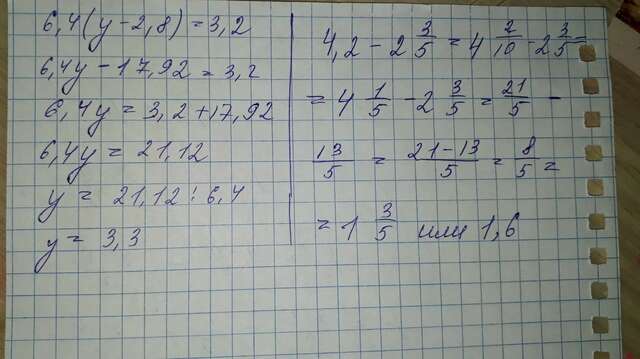 6,4(y-2,8)=3,2
6,4y-17,92=3,2
6,4y=3,2+17,92
6,4y=21,12
y= 21,12:6,4
y= 3,3
4,2-2 3/5=4 2/10-2 3/5=
=4 1/5-2 3/5=21/5-
13/5=21-13/5=8/5=
=1 3/5 или 1,6